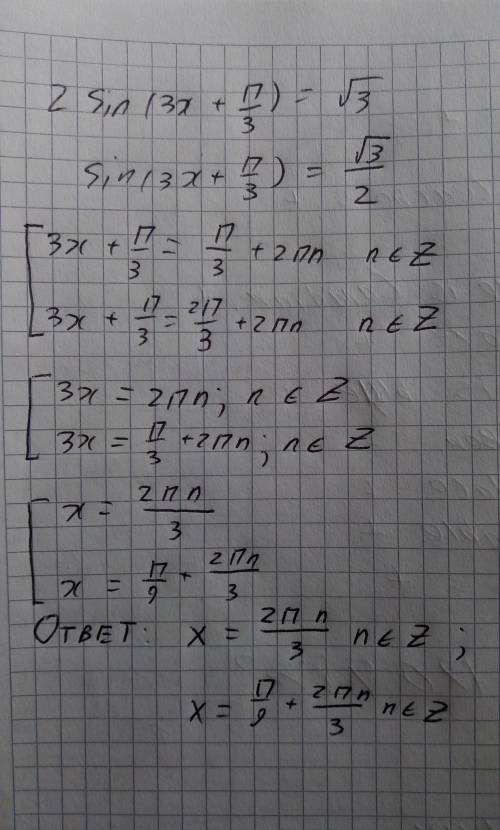 2 Sin (3x + П/3) = √3
Sin (3x + П/3) = √3/2
[ 3x + П/3 = П/3 + 2Пn n ∈ Z
3x + П/3 = 2П/3 + 2Пn n ∈ Z
[ 3x = 2Пn; n ∈ Z
3x = П/3 + 2Пn; n ∈ Z
[ x = 2Пn/3
x = П/9 + 2Пn/3
ОТВЕТ: x = 2Пn/3 n ∈ Z ;
x = П/9 + 2Пn/3 n ∈ Z